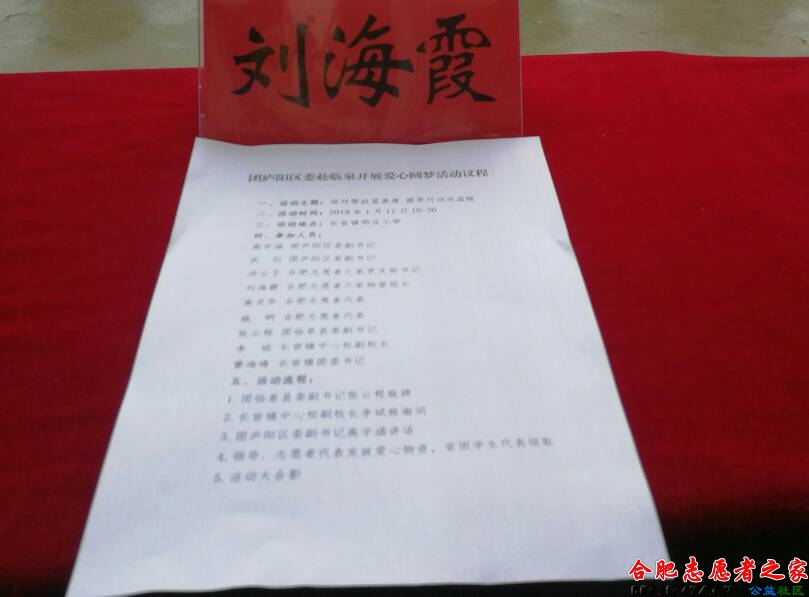 刘海霞
团庐阳区委赴临泉开展爱心圆梦活动议程
一、活动主题：结对帮扶显真情 圆梦行动送温暖
二、活动时间：2019年1月11日10:30
三、活动地点：长官镇 小学
四、参加人员：
高宇涵 团庐阳区委副书记
武 团庐阳区委副书记
洪云子 合肥志愿者之家党支部书记
刘海霞 合肥志愿者之家物管组长
合肥志愿者代表
姚明 合肥志愿者代表
张云程 团临泉县委副书记
李斌 长官镇中心校副校长
曹海峰 长官镇团委书记
五、活动流程：
1.团临泉县委副书记张云程致辞
2.长官镇中心校副校长李斌致谢词
3.团庐阳区委副书记高宇涵讲话
4.领导、志愿者代表发放爱心物资，贫困学生代表领取
5.活动大合影
合肥志愿者之家
公益社区